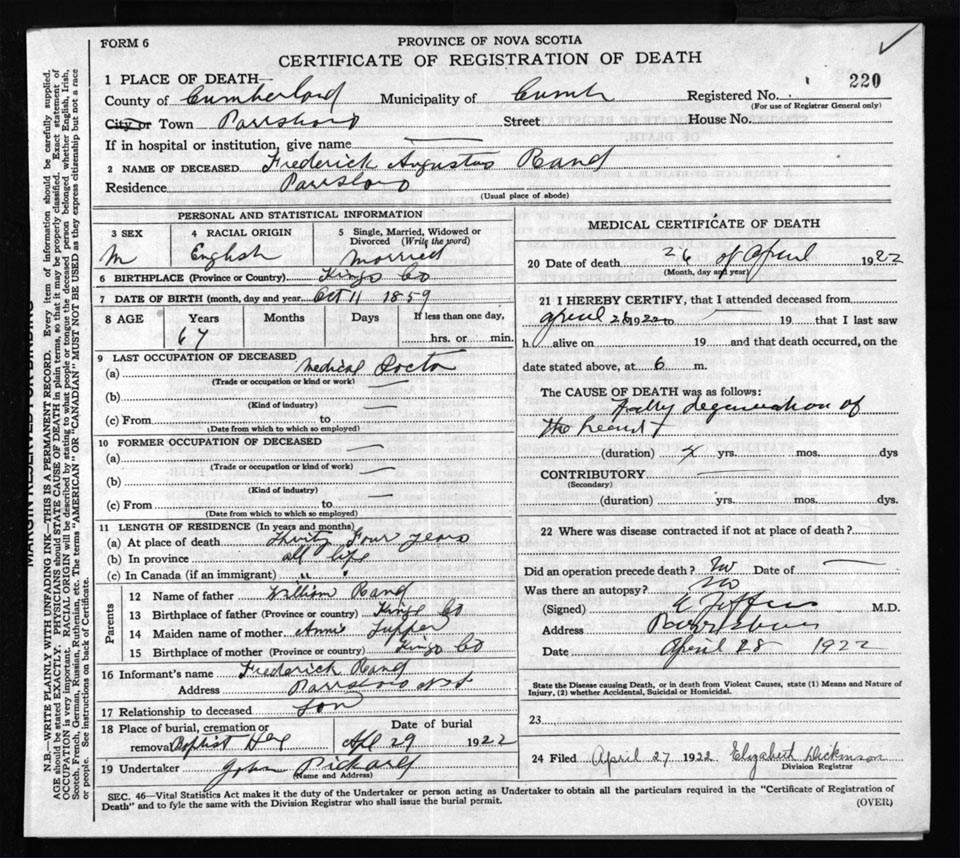 FORM 6
PROVINCE OF NOVA SCOTIA
CERTIFICATE OF REGISTRATION OF DEATH
220
1 PLACE OF DEATH—
County of Cumberland Municipality of Cumb Registered No.
(For use of Registrar General only)
City or Town Parrsboro Street House No.
If in hospital or institution, give name
2 NAME OF DECEASED Frederick Augustus Rand
Residence Parrsboro
(Usual place of abode)
PERSONAL AND STATISTICAL INFORMATION
3 SEX 4 RACIAL ORIGIN 5 Single, Married, Widowed or Divorced (Write the word)
M English Married
6 BIRTHPLACE (Province or Country) Kings Co
7 DATE OF BIRTH (month, day and year Oct 11 1859
8 AGE Years Months Days If less than one day,
67 hrs. or min.
9 LAST OCCUPATION OF DECEASED
(a) Medical Doctor
(Trade or occupation or kind or work)
(b)
(Kind of industry)
(c) From to
(Date from which to which so employed)
10 FORMER OCCUPATION OF DECEASED
(a)
(Trade or occupation or kind of work)
(b)
(Kind of industry)
(c) From to
(Date from which to which so employed)
11 LENGTH OF RESIDENCE (In years and months)
(a) At place of death Thirty Four years
(b) In province all life
(c) In Canada (if an immigrant) " "
Parents
12 Name of father William Rand
13 Birthplace of father (Province or country) Kings Co
14 Maiden name of mother Annie Tupper
15 Birthplace of mother (Province or country) Kings Co
16 Informant's name Frederick Rand
Address Parrsboro N.S.
17 Relationship to deceased Son
18 Place of burial, cremation or removal Baptist Date of burial Apl 29 1922
19 Undertaker John Pickard
(Name and Address)
MEDICAL CERTIFICATE OF DEATH
20 Date of death 26 of April 1922
(Month, day and year)
21 I HEREBY CERTIFY, that I attended deceased from
April 26 1922 to 19 that I last saw
h alive on 19 and that death occurred, on the
date stated above, at 6 m.
The CAUSE OF DEATH was as follows:
Fatty degeneration of
the heart
(duration) yrs. mos. dys
CONTRIBUTORY
(Secondary)
(duration) yrs. mos. dys.
22 Where was disease contracted if not at place of death?
Did an operation precede death? No Date of
Was there an autopsy? No
(Signed) M.D.
Address Parrsboro
Date April 28 1922
State the Disease causing Death, or in death from Violent Causes, state (1) Means and Nature of
Injury, (2) whether Accidental, Suicidal or Homicidal.
23
24 Filed April 27 1922 Elizabeth Dickinson
Division Registrar
SEC. 46—Vital Statistics Act makes it the duty of the Undertaker or person acting as Undertaker to obtain all the particulars required in the "Certificate of Registration of
Death" and to fyle the same with the Division Registrar who shall issue the burial permit. (OVER)
MARGIN RESERVED FOR BINDING
N.B.—WRITE PLAINLY WITH UNFADING INK—THIS IS A PERMANENT RECORD. Every item of information should be carefully supplied.
AGE should be stated EXACTLY. PHYSICIANS should STATE CAUSE OF DEATH in plain terms, so that it may be properly classified. Exact statement of
OCCUPATION is very important. RACIAL ORIGIN will be described by stating to what people or tongue the deceased person belonged whether English, Irish,
Scotch, French, German, Russian, Ruthenian, etc. The terms "AMERICAN" OR "CANADIAN" MUST NOT BE USED as they express citizenship but not a race
or people. See instructions on back of Certificate.